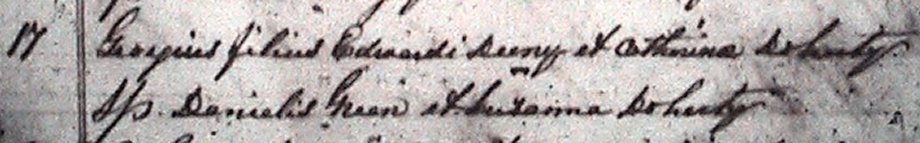 17 Georgius filius Edwardi Deeny et Cathrina Doherty
Sp. Danielis Green et Susanna Doherty